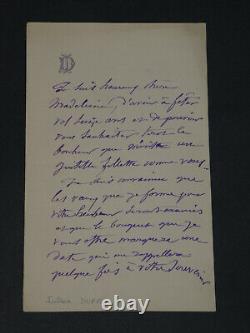 D
Je suis heureux chère
Madeleine, d'avoir à fêter
vos seize ans et de pouvoir
vous souhaiter tout le
bonheur que mérite une
gentille fillette comme vous.
Je suis convaincu que
les vœux que je forme pour
votre bonheur seront exaucés
et que le bouquet que je
vous offre marquera une
date qui me rappellera
quelque fois à votre souvenir